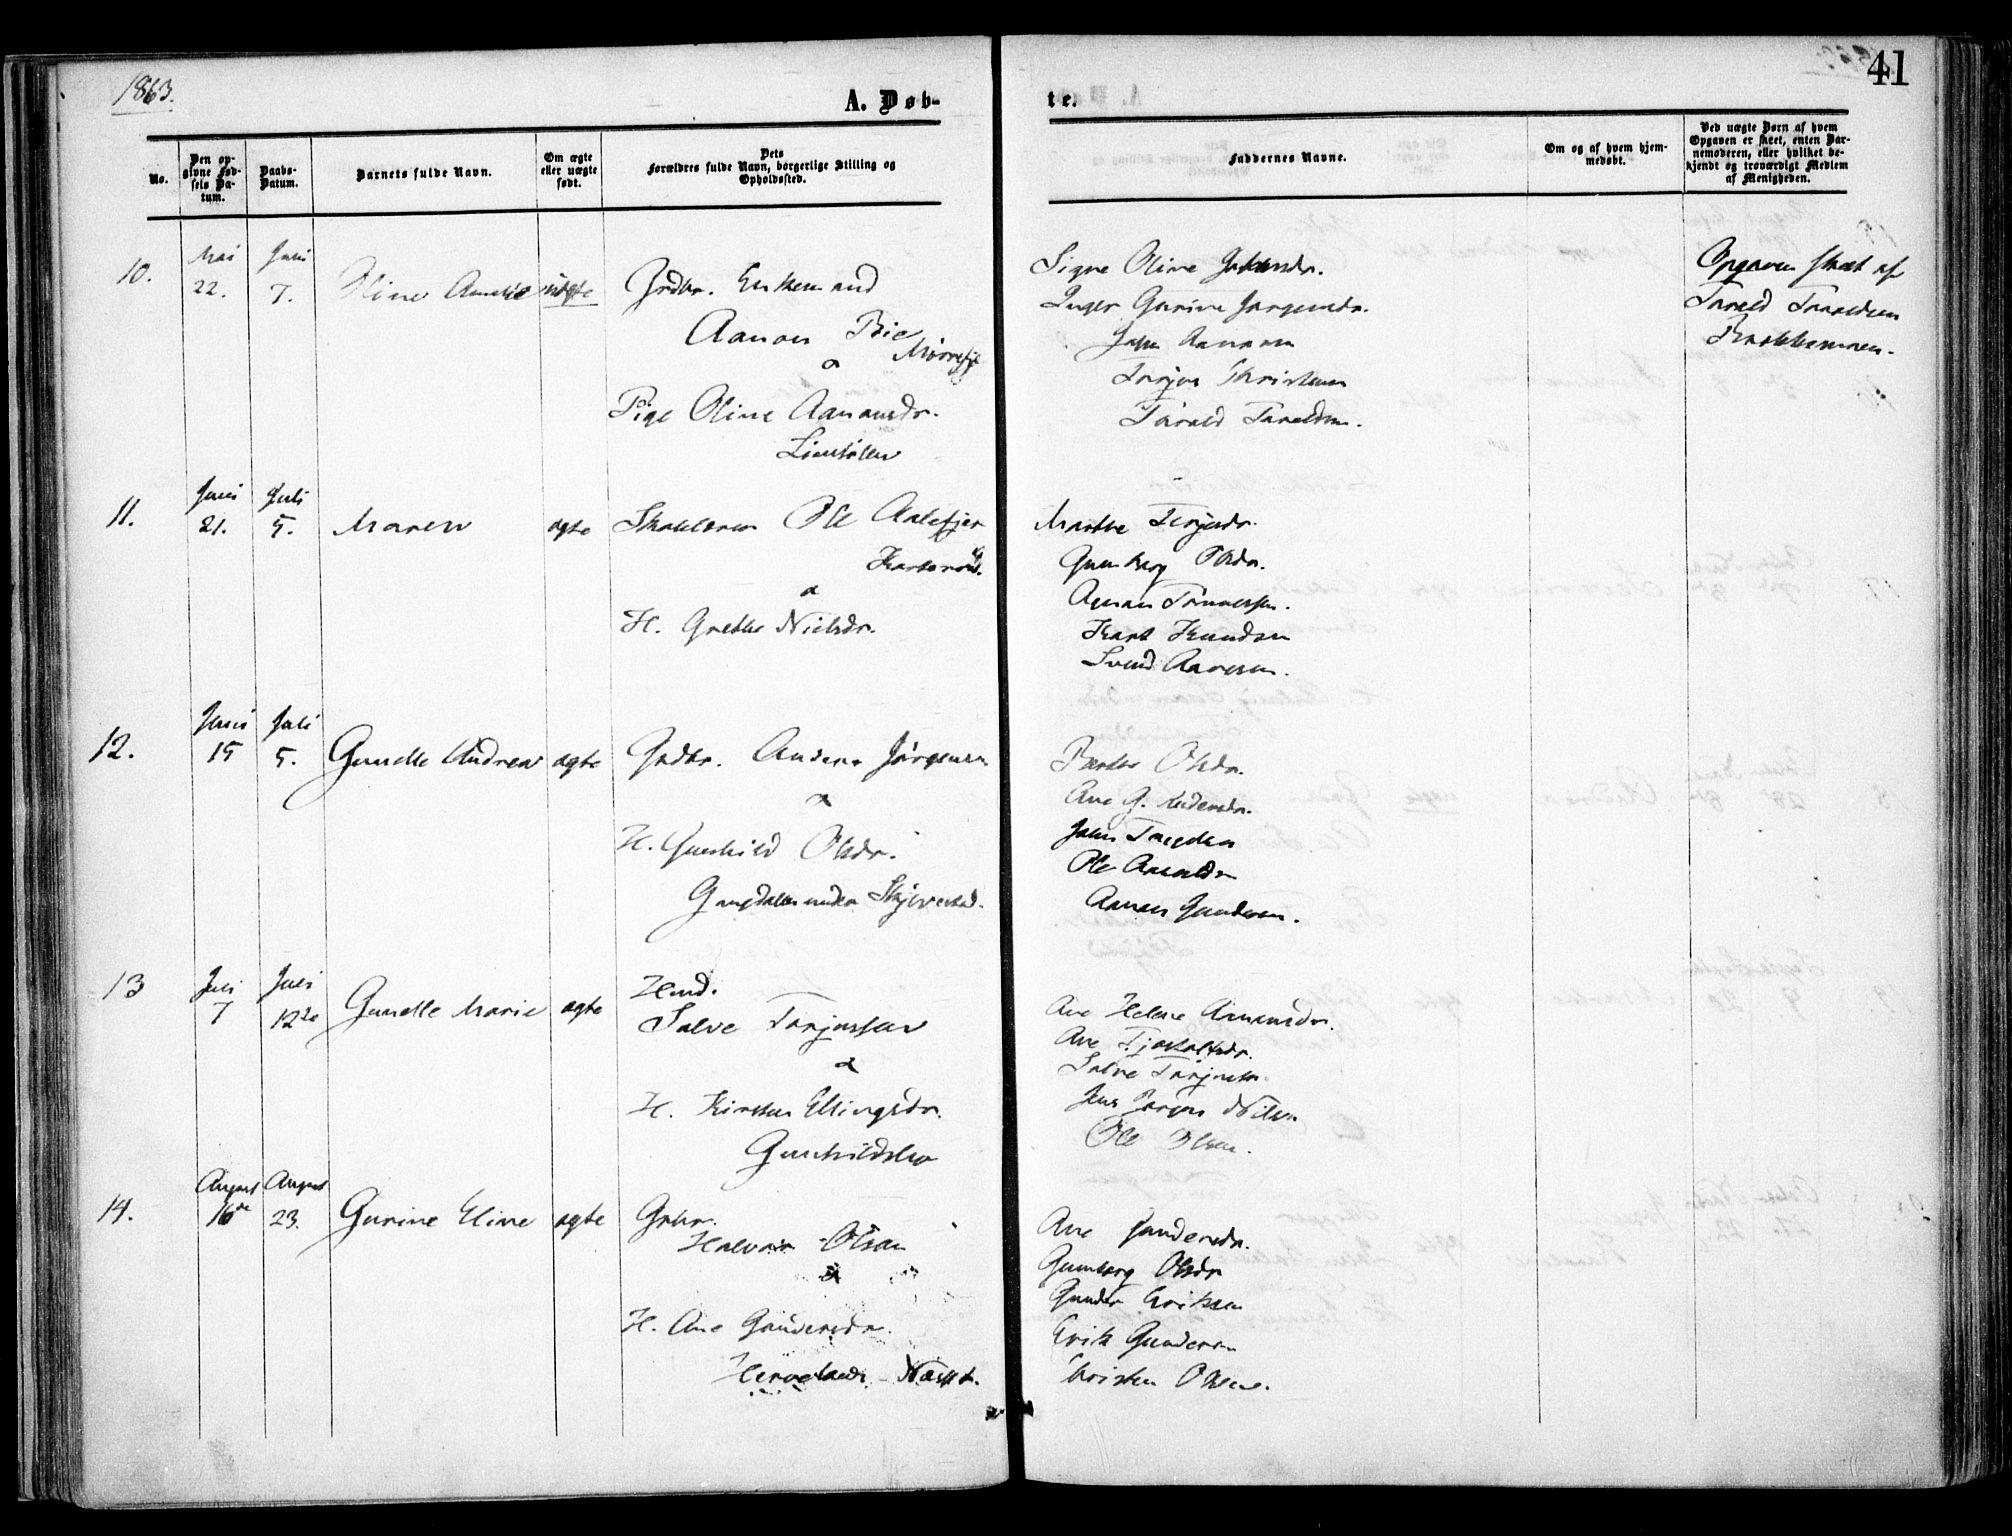 1863.
A. Døb-
No.
Den op-
givne Fød-
sels Da-
tum.
Daabs-
Datum.
Barnets fulde Navn.
Om ægte
eller uægte
født.
Dets
Forældres fulde Navn, borgerlige Stilling og
Opholdssted.
10.
Mai
22.
Juni
7.
Oline Amalie
uægte
Grdbr. Enkemand
Aanon Bie
o
Pige Oline Aanonsdr.
11.
Juni
21.
Juli
5.
Maren
ægte
Skolelærer Ole
o
H. Grethe Nielsdr.
12.
Juni
15
Juli
5.
Gunelle Andrea
ægte
Grdbr. Anders Jørgensen
o
H. Gunhild Olsdr.
under
13
Juli
7
Juli
12te
Gunelle Marie
ægte
Hmd.
Salve Torjussen
o
H. Kirsten Ellingsdr.
14.
August
16de
August
23.
Gurine Eline
ægte
Grbr.
Halvor Olsen
o
H. Ane Gundersdr.
41
te.
Faddernes Navne.
Om og af hvem hjem-
medøbt.
Ved uægte Børn af hvem
Opgaven er skeet, enten Bar-
nemoderen, eller hvilket be-
kjendt og troværdigt Medlem
af Menigheden.
Signe Oline
Inger Gurine Jørgensdr.
Aanonsen
Torjus Christensen
Tarald Taraldsen.
Opgaven skeet af
Tarald Taraldsen
Marthe Terjesdr.
Gunborg Olsdr.
Aanon Tønnessen.
Knud Knudsen
Svend Aanesen.
Berthe Olsdr.
Ane G. Andersdr.
John
Ole
Aanon Gundersen.
Ane Helene Aanonsdr.
Ane
Salve Torjussen
Jens Jørgen Nilsen
Ole Olsen.
Ane Gundersdr.
Gunborg Olsdr
Gunder Eriksen
Erik Gundersen
Christen Olsen.